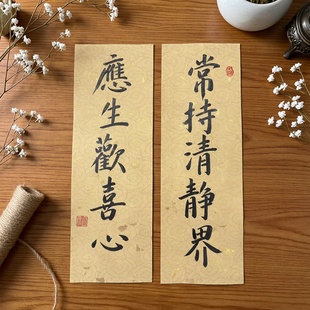 常持清靜界
應生歡喜心